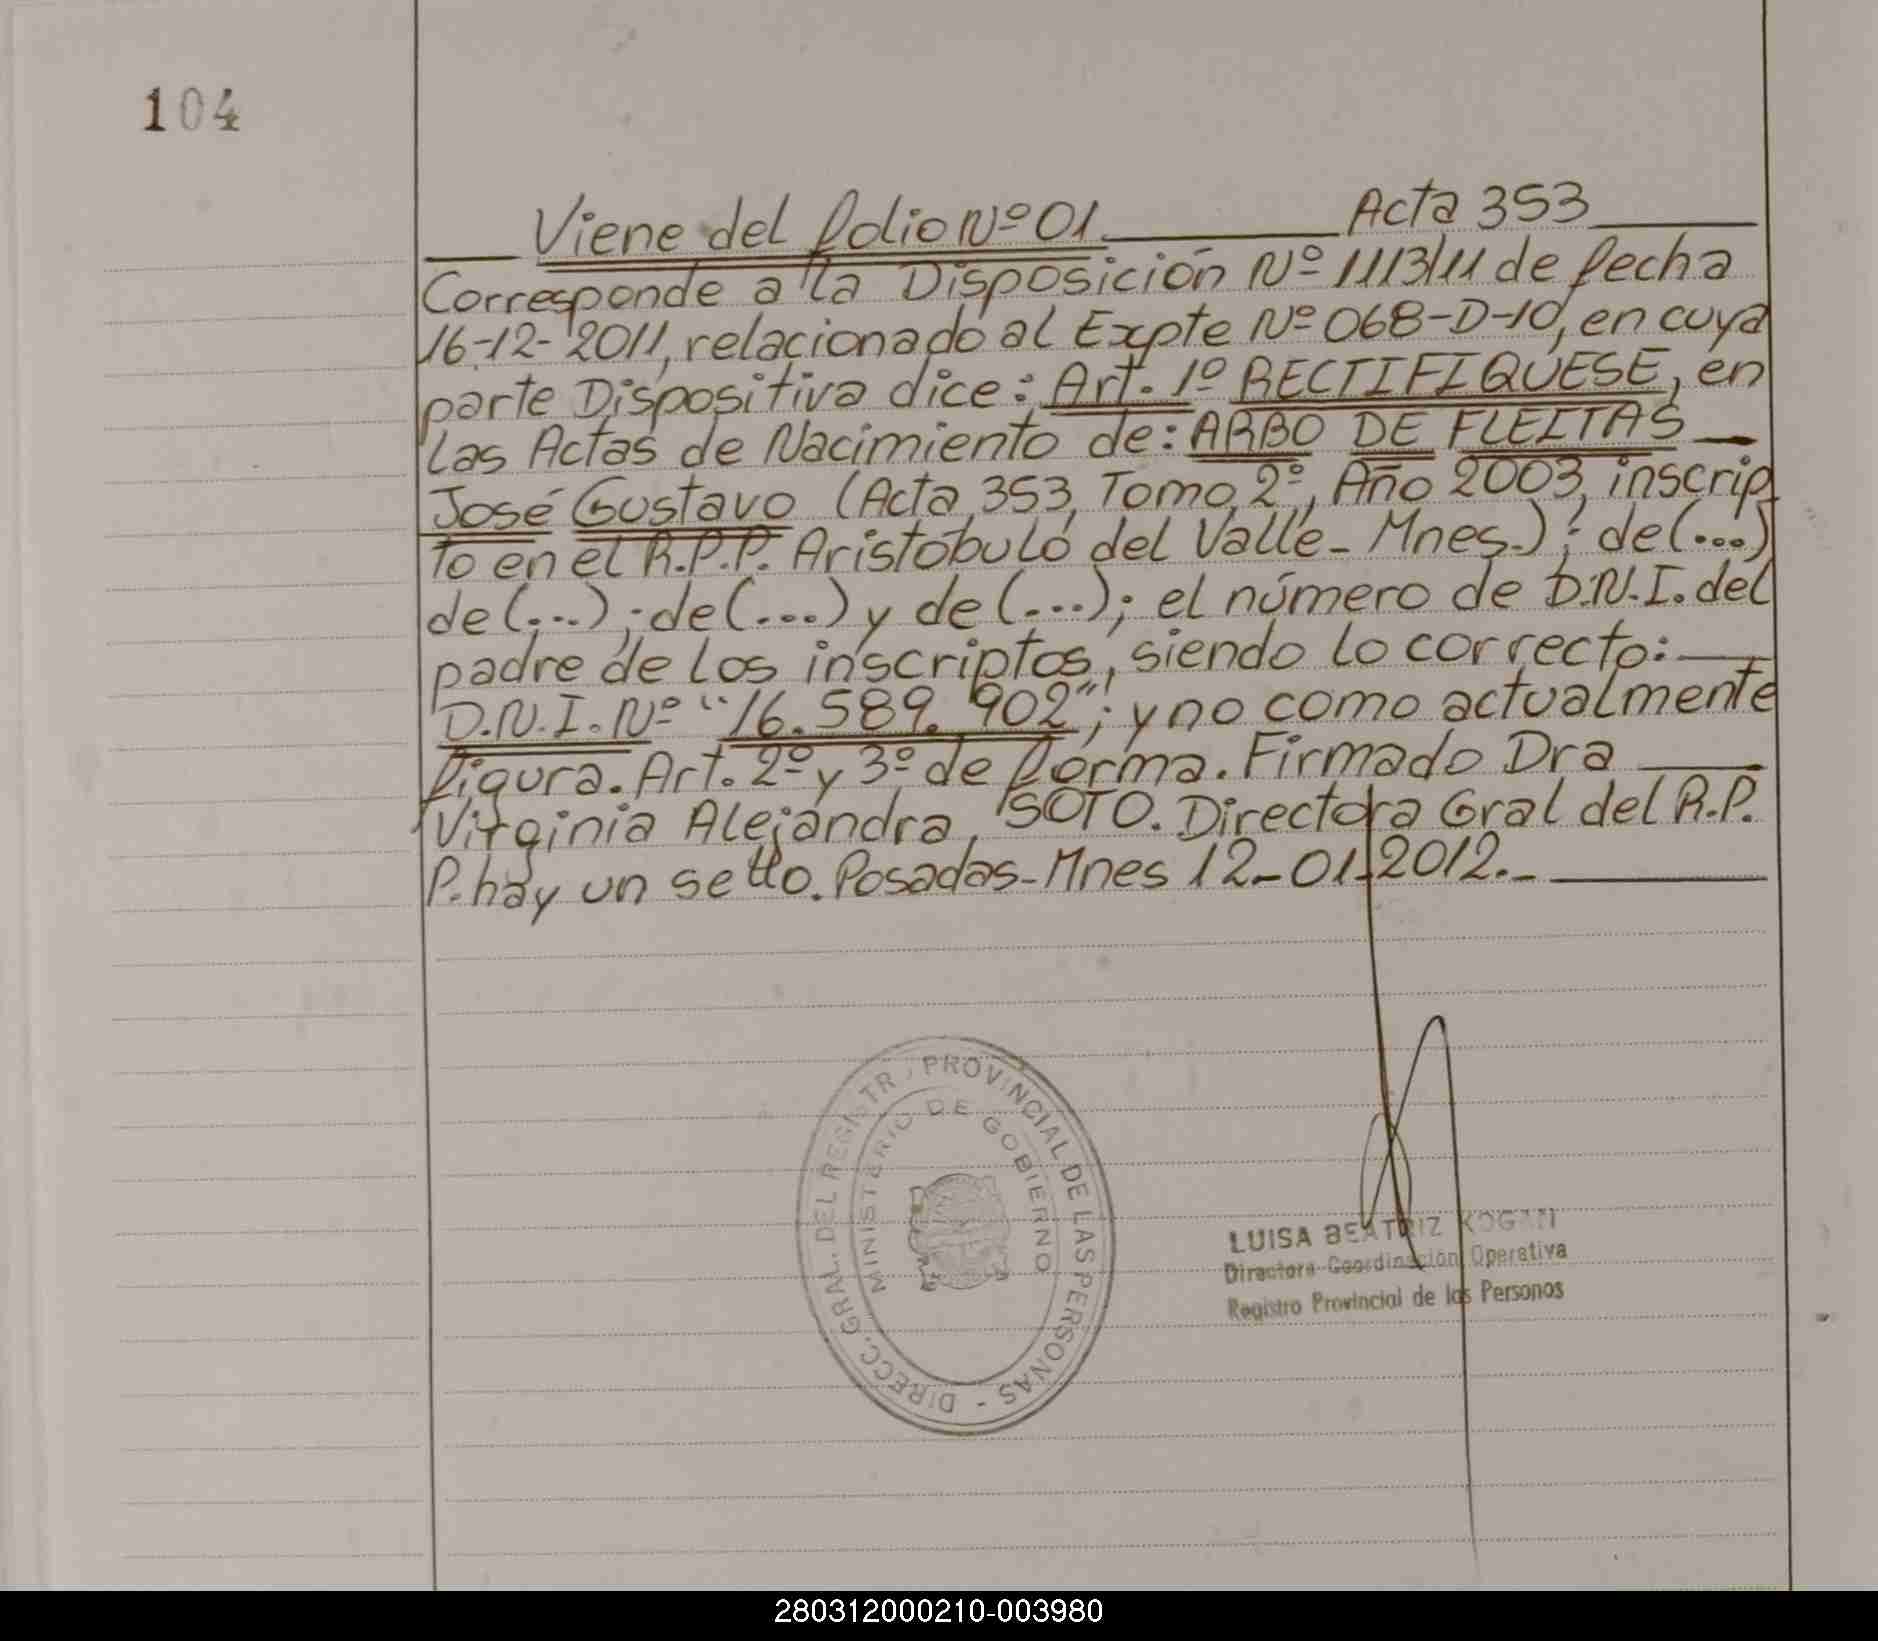 104
Viene del folio Nº 01 Acta 353
Corresponde a la Disposición Nº 1113/11 de fecha
16-12-2011, relacionado al Expte Nº 068-D-10, en cuya
parte Dispositiva dice: Art. 1º RECTIFIQUESE, en
las Actas de Nacimiento de: ARBO DE FLEITAS
José Gustavo (Acta 353, Tomo 2º, Año 2003, inscrip
to en el R.P.P. Aristóbulo del Valle - Mnes.); de (...)
de (...); de (...) y de (...); el número de D.N.I. del
padre de los inscriptos, siendo lo correcto:
D.N.I. Nº "16.589.902"; y no como actualmente
figura. Art. 2º y 3º de forma. Firmado Dra
Virginia Alejandra, SOTO. Directora Gral del R.P.
P. hay un sello. Posadas - Mnes 12-01-2012.-
DIRECC. GRAL. DEL REGISTR PROVINCIAL DE LAS PERSONAS -
MINISTERIO DE GOBIERNO
LUISA BEATRIZ KOGAN
Directora Coordinación Operativa
Registro Provincial de las Personas
280312000210-003980